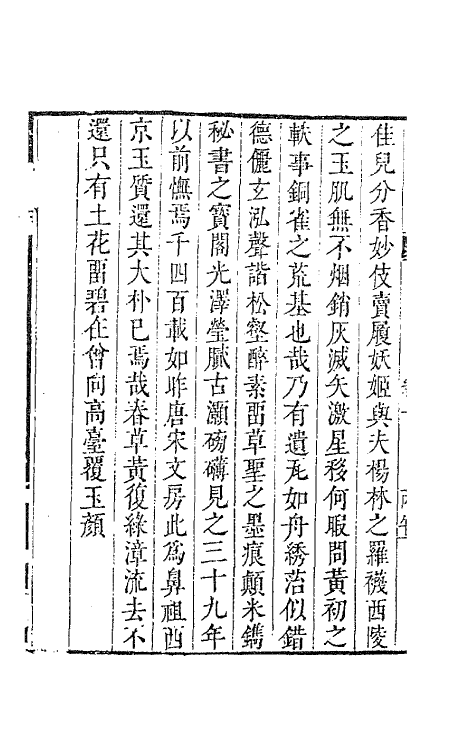 佳兒分香妙伎賣履妖姬與夫楊林之羅襪西陵
之玉肌無不烟銷灰滅矢激星移何暇問黃初之
軼事銅雀之荒基也哉乃有遺瓦如舟綉蓞似錯
德儷玄泓聲諧松壑醉素畱草聖之墨痕顛米鐫
秘書之寶閣光澤瑩膩古灝磅礴見之三十九年
以前憮焉千四百載如昨唐宋文房此爲鼻祖西
京玉質還其大朴已焉哉春草黃復綠漳流去不
還只有土花畱碧在曾向高臺覆玉顏